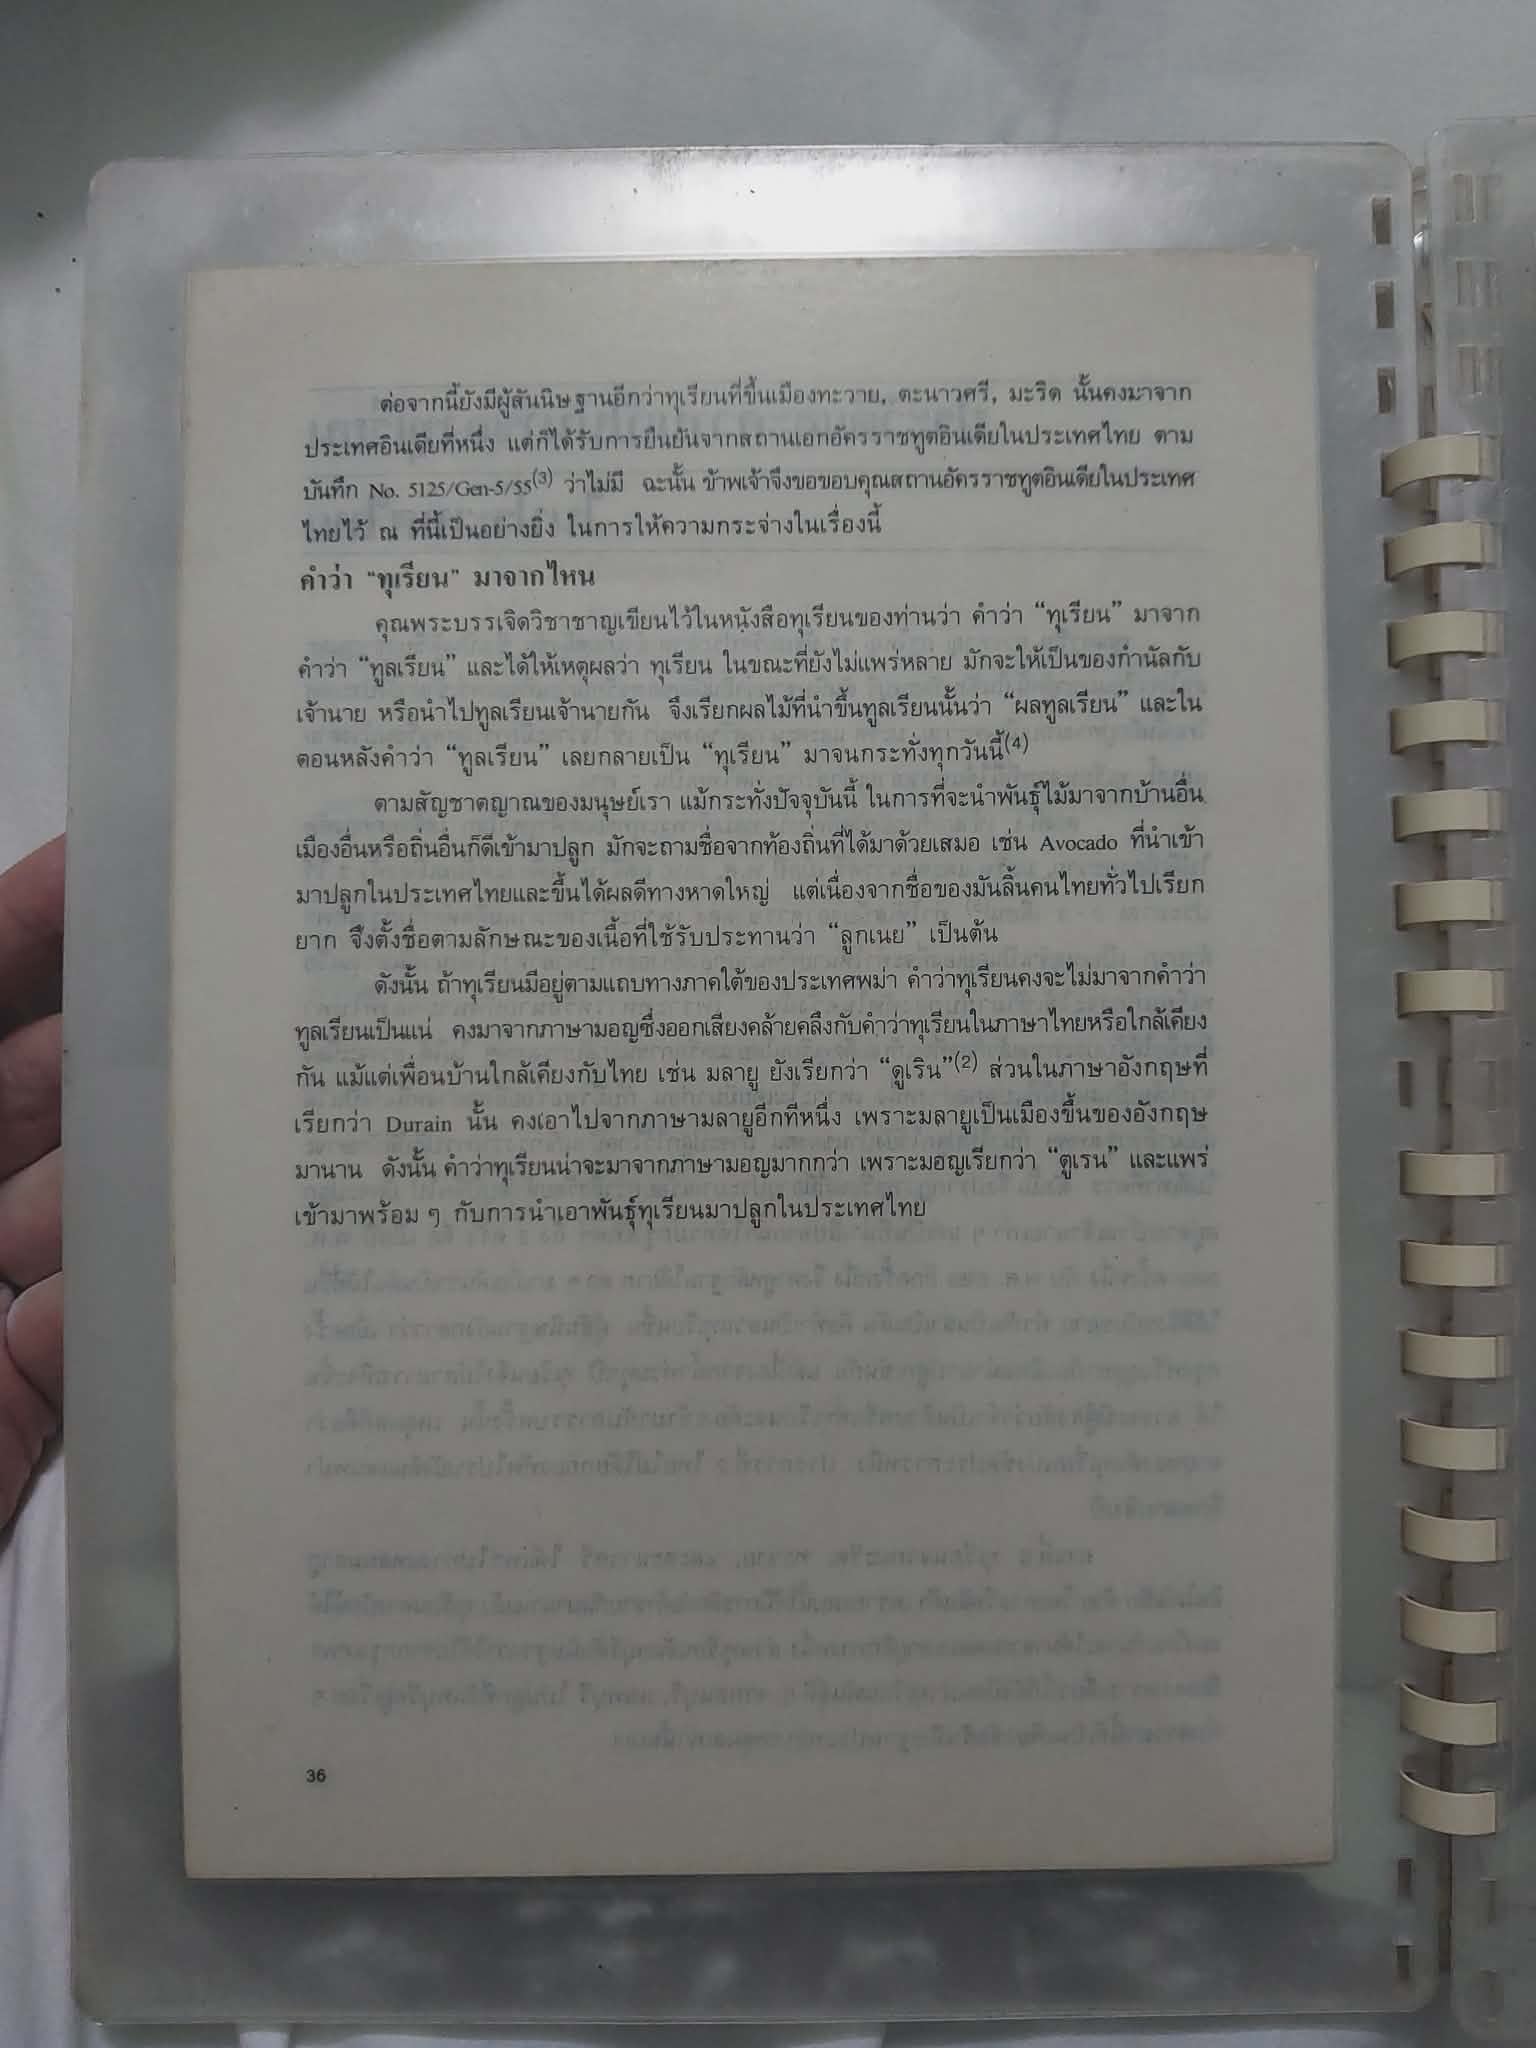 ต่อจากนี้ยังมีผู้สันนิษฐานอีกว่าทุเรียนที่ขึ้นเมืองทะวาย, ตะนาวศรี, มะริด นั้นคงมาจาก
ประเทศอินเดียที่หนึ่ง แต่ก็ได้รับการยืนยันจากสถานเอกอัครราชทูตอินเดียในประเทศไทย ตาม
บันทึก No. 5125/Gen-5/55(3) ว่าไม่มี ฉะนั้น ข้าพเจ้าจึงขอขอบคุณสถานอัครราชทูตอินเดียในประเทศ
ไทยไว้ ณ ที่นี้เป็นอย่างยิ่ง ในการให้ความกระจ่างในเรื่องนี้
คำว่า "ทุเรียน" มาจากไหน
คุณพระบรรเจิดวิชาชาญเขียนไว้ในหนังสือทุเรียนของท่านว่า คำว่า "ทุเรียน" มาจาก
คำว่า "ทูลเรียน" และได้ให้เหตุผลว่า ทุเรียน ในขณะที่ยังไม่แพร่หลาย มักจะให้เป็นของกำนัลกับ
เจ้านาย หรือนำไปทูลเรียนเจ้านายกัน จึงเรียกผลไม้ที่นำขึ้นทูลเรียนนั้นว่า "ผลทูลเรียน" และใน
ตอนหลังคำว่า "ทูลเรียน" เลยกลายเป็น "ทุเรียน" มาจนกระทั่งทุกวันนี้(4)
ตามสัญชาตญาณของมนุษย์เรา แม้กระทั่งปัจจุบันนี้ ในการที่จะนำพันธุ์ไม้มาจากบ้านอื่น
เมืองอื่นหรือถิ่นอื่นก็ดีเข้ามาปลูก มักจะถามชื่อจากท้องถิ่นที่ได้มาด้วยเสมอ เช่น Avocado ที่นำเข้า
มาปลูกในประเทศไทยและขึ้นได้ผลดีทางหาดใหญ่ แต่เนื่องจากชื่อของมันลิ้นคนไทยทั่วไปเรียก
ยาก จึงตั้งชื่อตามลักษณะของเนื้อที่ใช้รับประทานว่า "ลูกเนย" เป็นต้น
ดังนั้น ถ้าทุเรียนมีอยู่ตามแถบทางภาคใต้ของประเทศพม่า คำว่าทุเรียนคงจะไม่มาจากคำว่า
ทูลเรียนเป็นแน่ คงมาจากภาษามอญซึ่งออกเสียงคล้ายคลึงกับคำว่าทุเรียนในภาษาไทยหรือใกล้เคียง
กัน แม้แต่เพื่อนบ้านใกล้เคียงกับไทย เช่น มลายู ยังเรียกว่า "ดูเริน"(2) ส่วนในภาษาอังกฤษที่
เรียกว่า Durain นั้น คงเอาไปจากภาษามลายูอีกทีหนึ่ง เพราะมลายูเป็นเมืองขึ้นของอังกฤษ
มานาน ดังนั้น คำว่าทุเรียนน่าจะมาจากภาษามอญมากกว่า เพราะมอญเรียกว่า "ตูเรน" และแพร่
เข้ามาพร้อม ๆ กับการนำเอาพันธุ์ทุเรียนมาปลูกในประเทศไทย
36